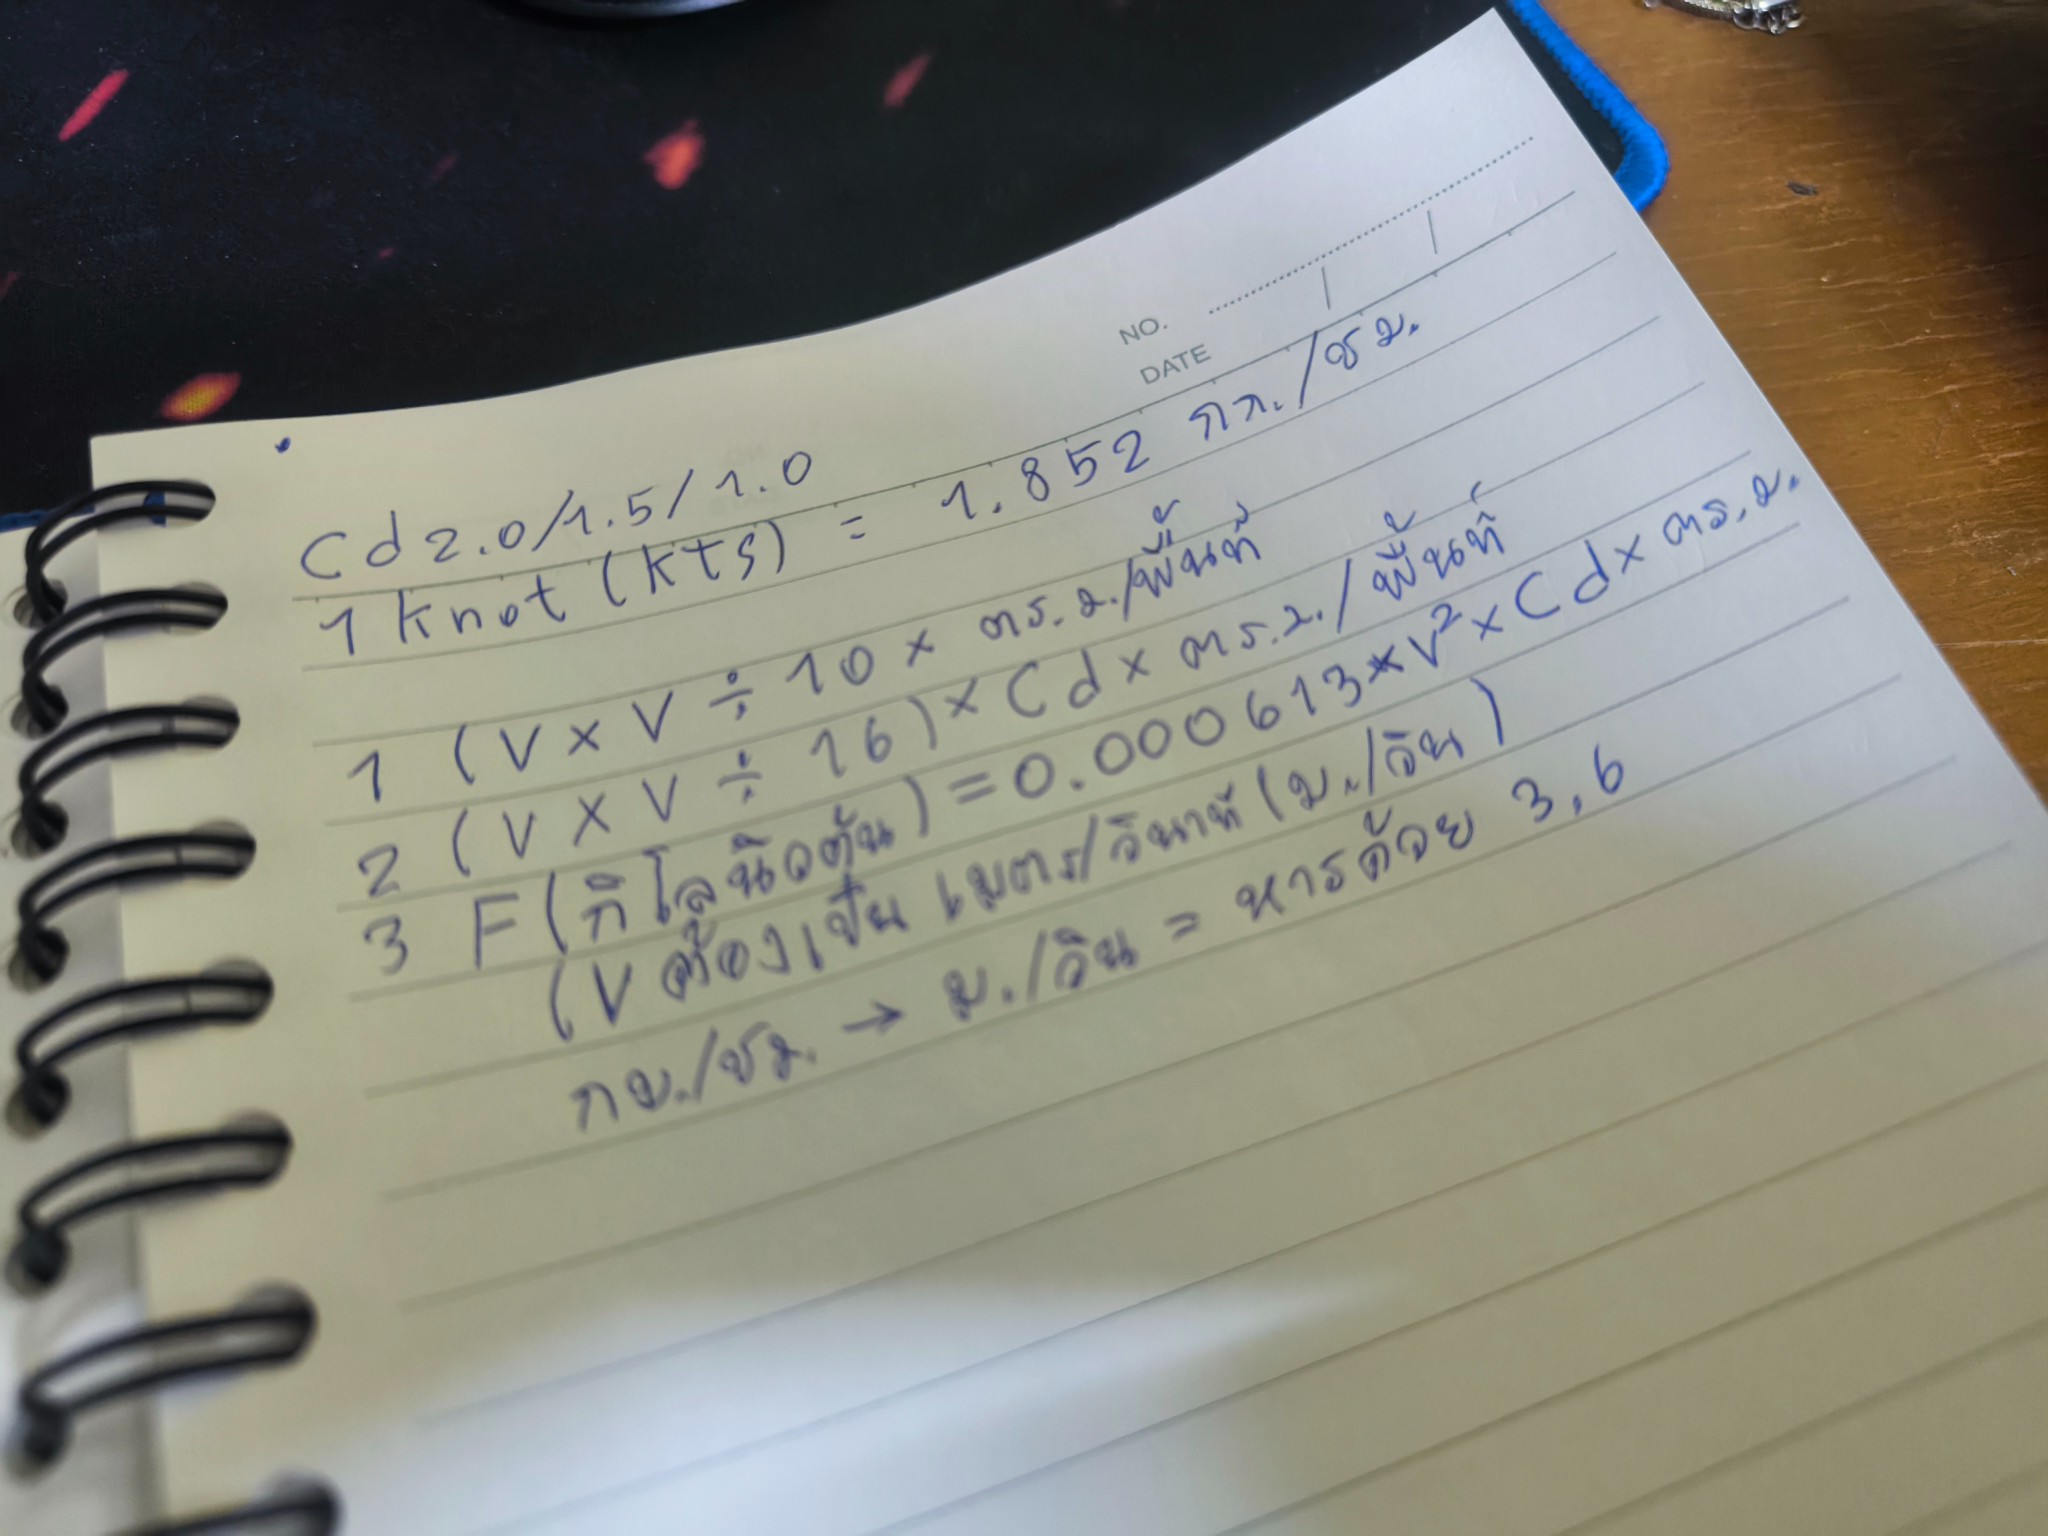 NO.
DATE
Cd 2.0/1.5/1.0
1 Knot (kts) = 1.852 กก./ชม.
1 (V × V ÷ 10 × ตร.ม./พื้นที่
2 (V × V ÷ 16) × Cd × ตร.ม./พื้นที่
3 F (กิโลนิวตัน) = 0.000613 × V² × Cd × ตร.ม.
(V ต้องเป็น เมตร/วินาที (ม./วิน)
กม./ชม. → ม./วิน = หารด้วย 3.6